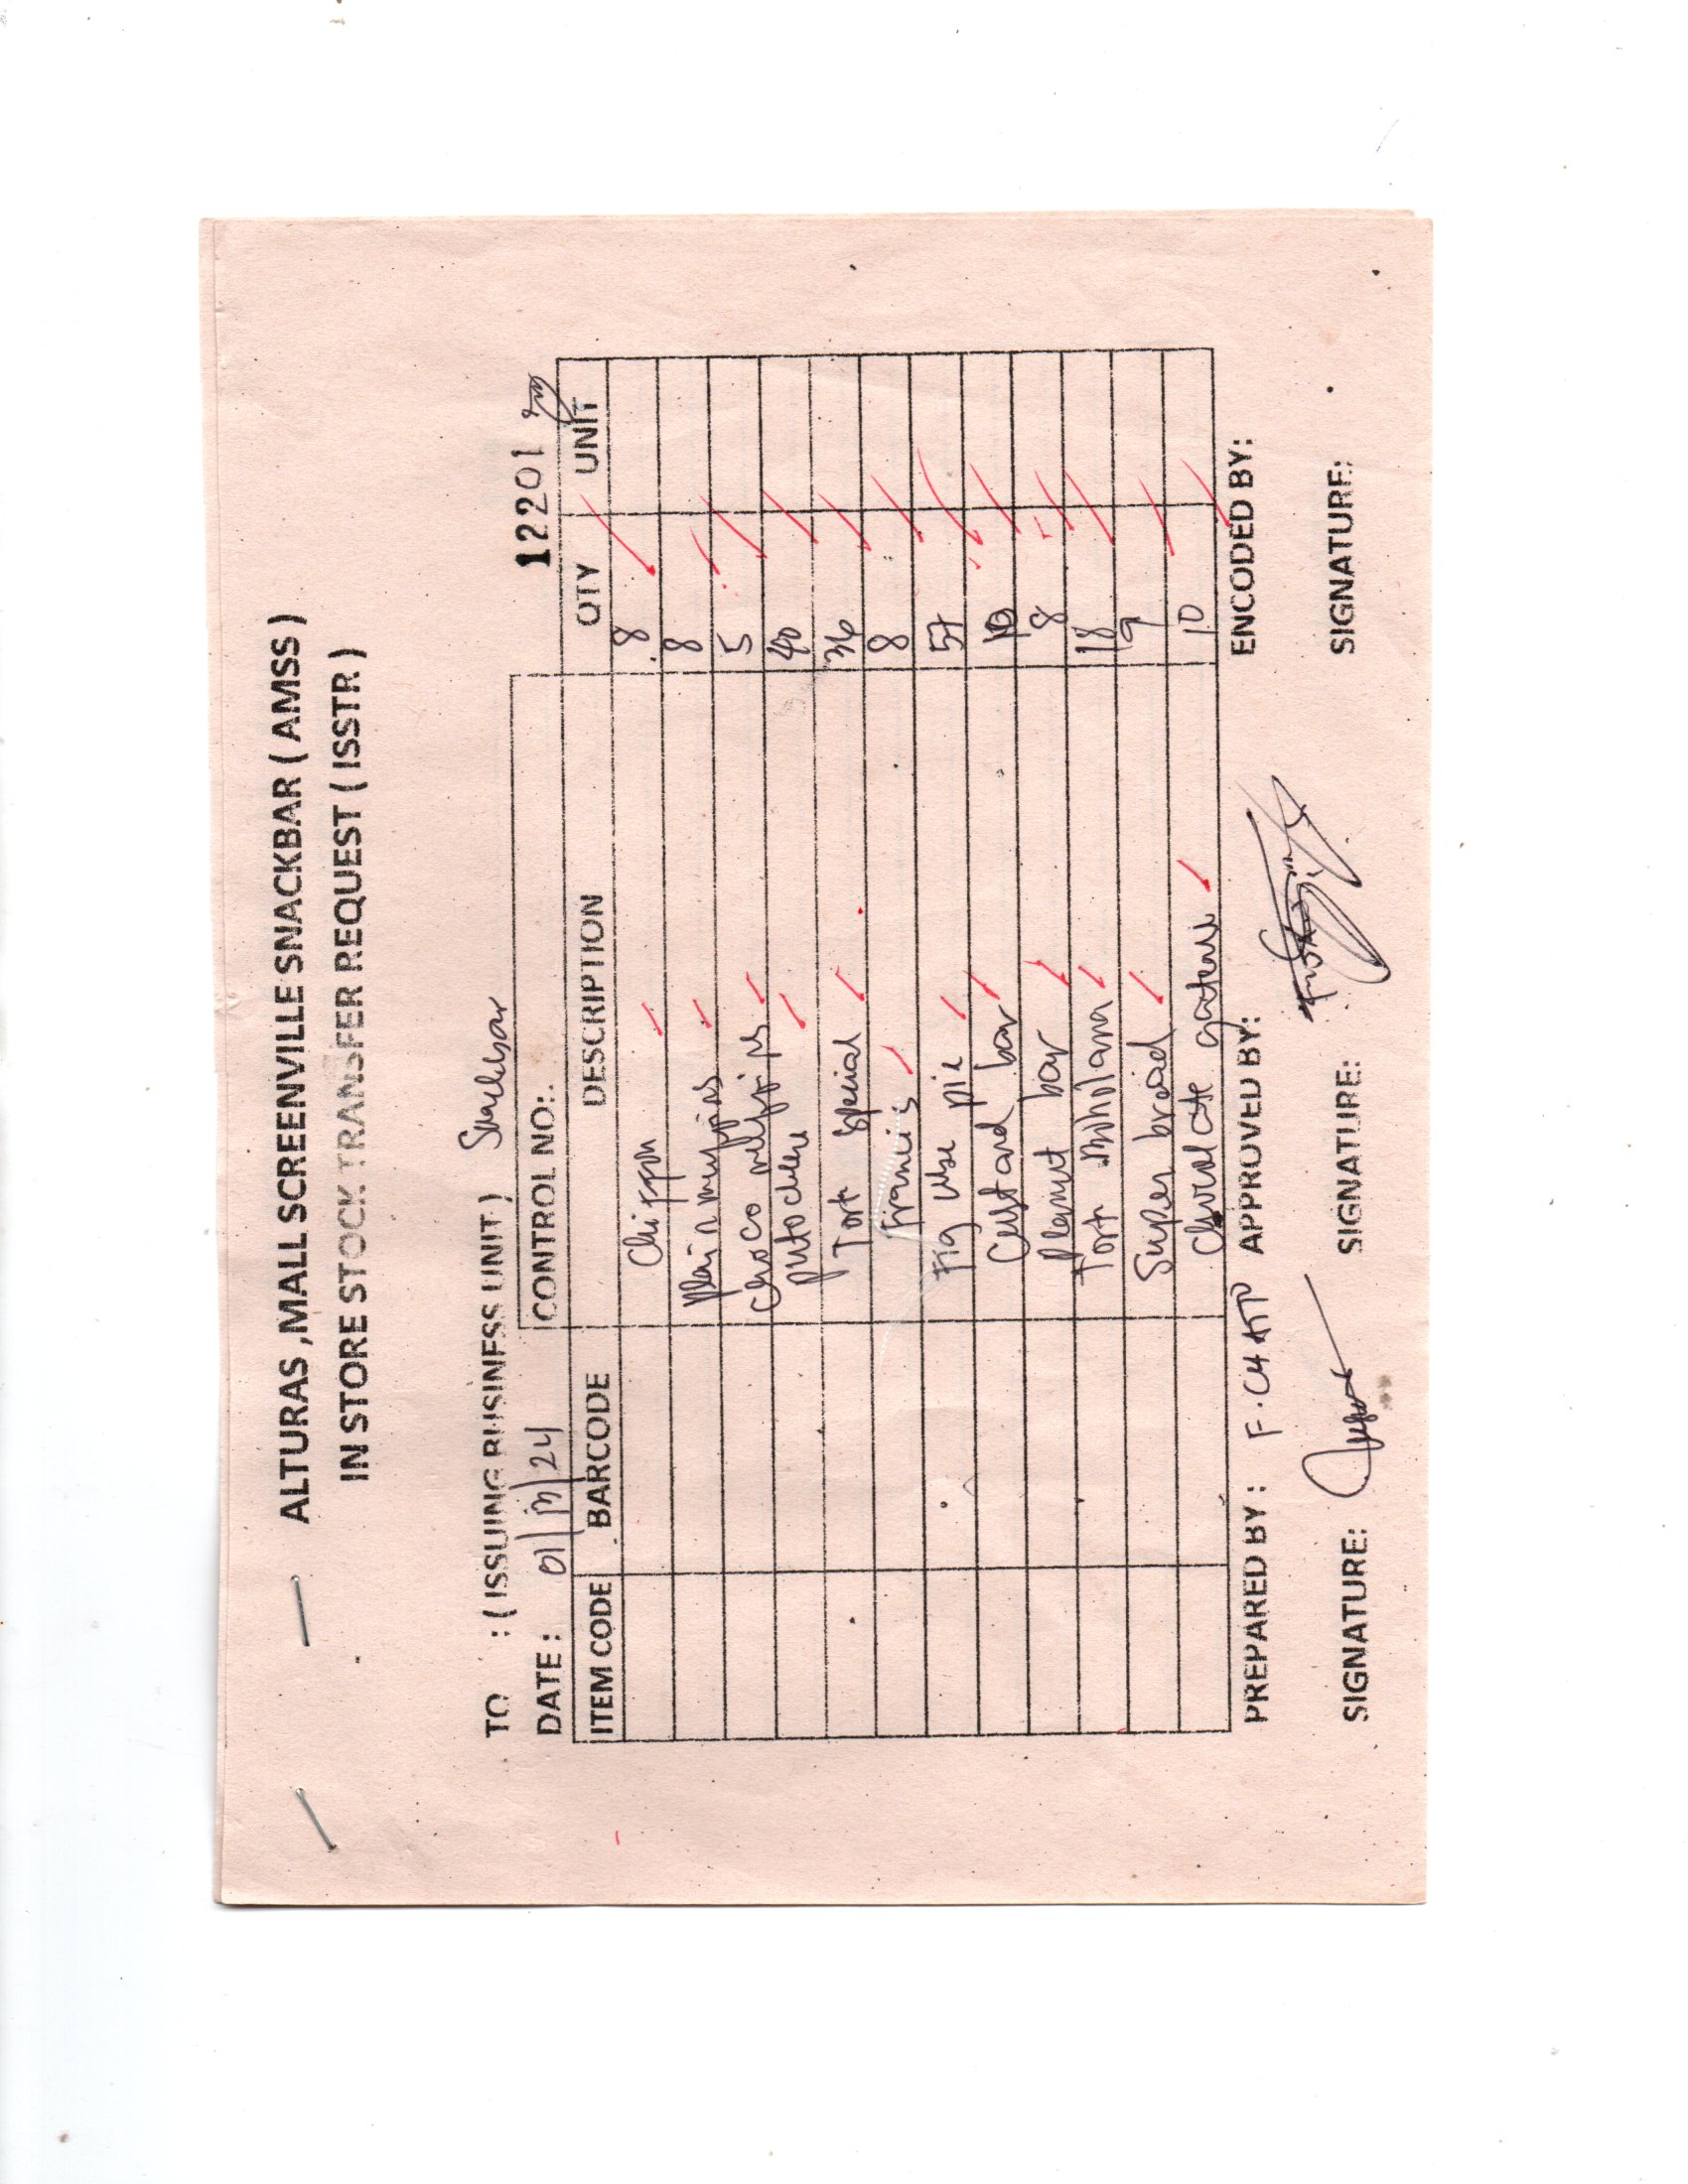 ALTURAS ,MALL SCREENVILLE SNACKBAR ( AMSS )
IN STORE STOCK TRANSFER REQUEST ( ISSTR )
TO : ( ISSUING BUSINESS UNIT ) Snackbar
DATE : 01 | 13 | 24 CONTROL NO:. 12201
ITEM CODE BARCODE DESCRIPTION QTY UNIT
Chiffon 8
plain muffins 8
choco muffins 5
puto cheese 40
Torta special 36
Francis 8
Fig use pie 57
Custard bar 10
Peanut bar 8
Torta Boholana 18
Super braid 9
Chocolate gateau 10
PREPARED BY : APPROVED BY: ENCODED BY:
SIGNATURE: SIGNATURE: SIGNATURE: